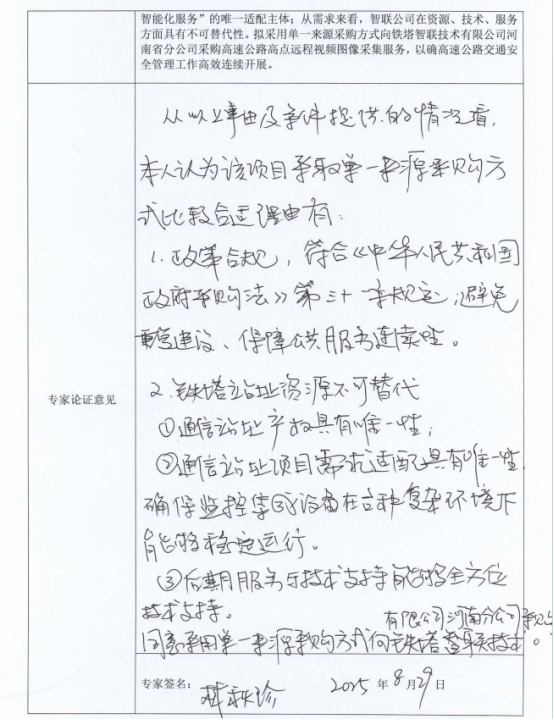 智能化服务”的唯一适配主体；从需求来看，智联公司在资源、技术、服务
方面具有不可替代性。拟采用单一来源采购方式向铁塔智联技术有限公司河
南省分公司采购高速公路高点远程视频图像采集服务，以确高速公路交通安
全管理工作高效连续开展。
专家论证意见
从以上事由及条件提供的情况看，
本人认为该项目采取单一来源采购方
式比较合适理由有：
1.政策合规，符合《中华人民共和国
政府采购法》第三十一条规定，避免
重复建设、保障公共服务连续性。
2.铁塔站址资源不可替代
①通信站址产权具有唯一性；
②通信站址项目需求适配具有唯一性，
确保监控等设备在各种复杂环境下
能够稳定运行。
③后期服务与技术支持能够全方位
技术支持。
有限公司河南分公司采购
同意采用单一来源采购方式向铁塔智联技术。
专家签名：
2025年8月29日